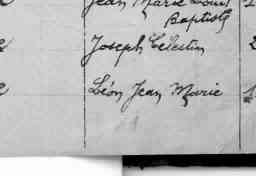 Jean Marie Louis
Baptiste
Joseph Célestin
Léon Jean Marie